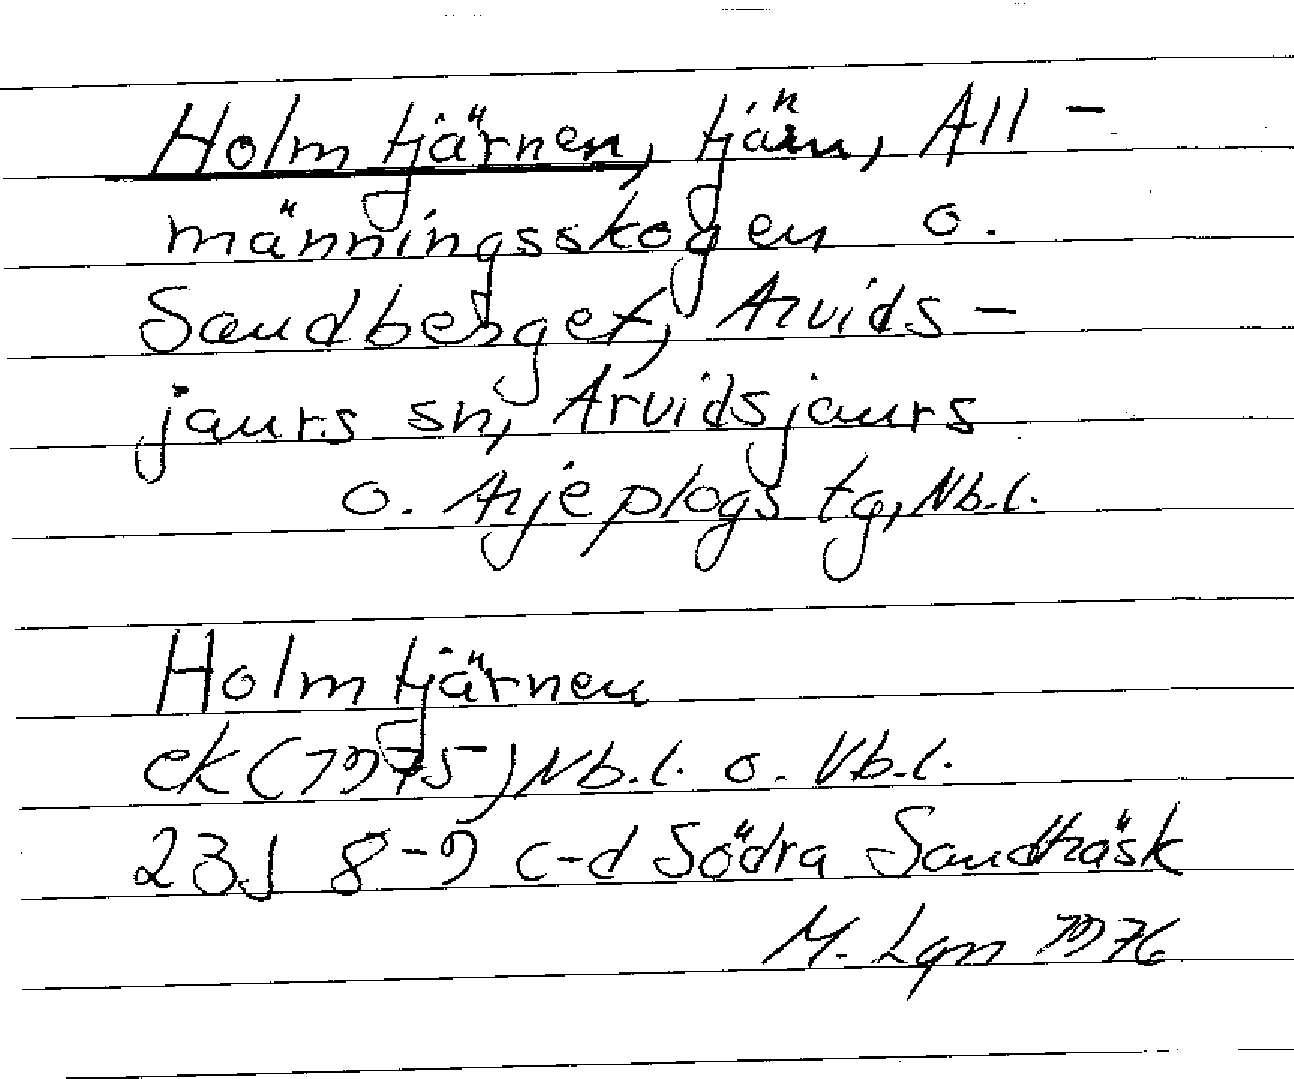 Holmtjärnen, tjärn, All-
männingsskogen o.
Sandberget, Arvids-
jaurs sn, Arvidsjaurs
o. Arjeplogs tg, Nb.l.
Holmtjärnen
ek (1975) Nb.l. o. Vb.l.
23J 8-9 c-d Södra Sandträsk
M. Lgn 1976